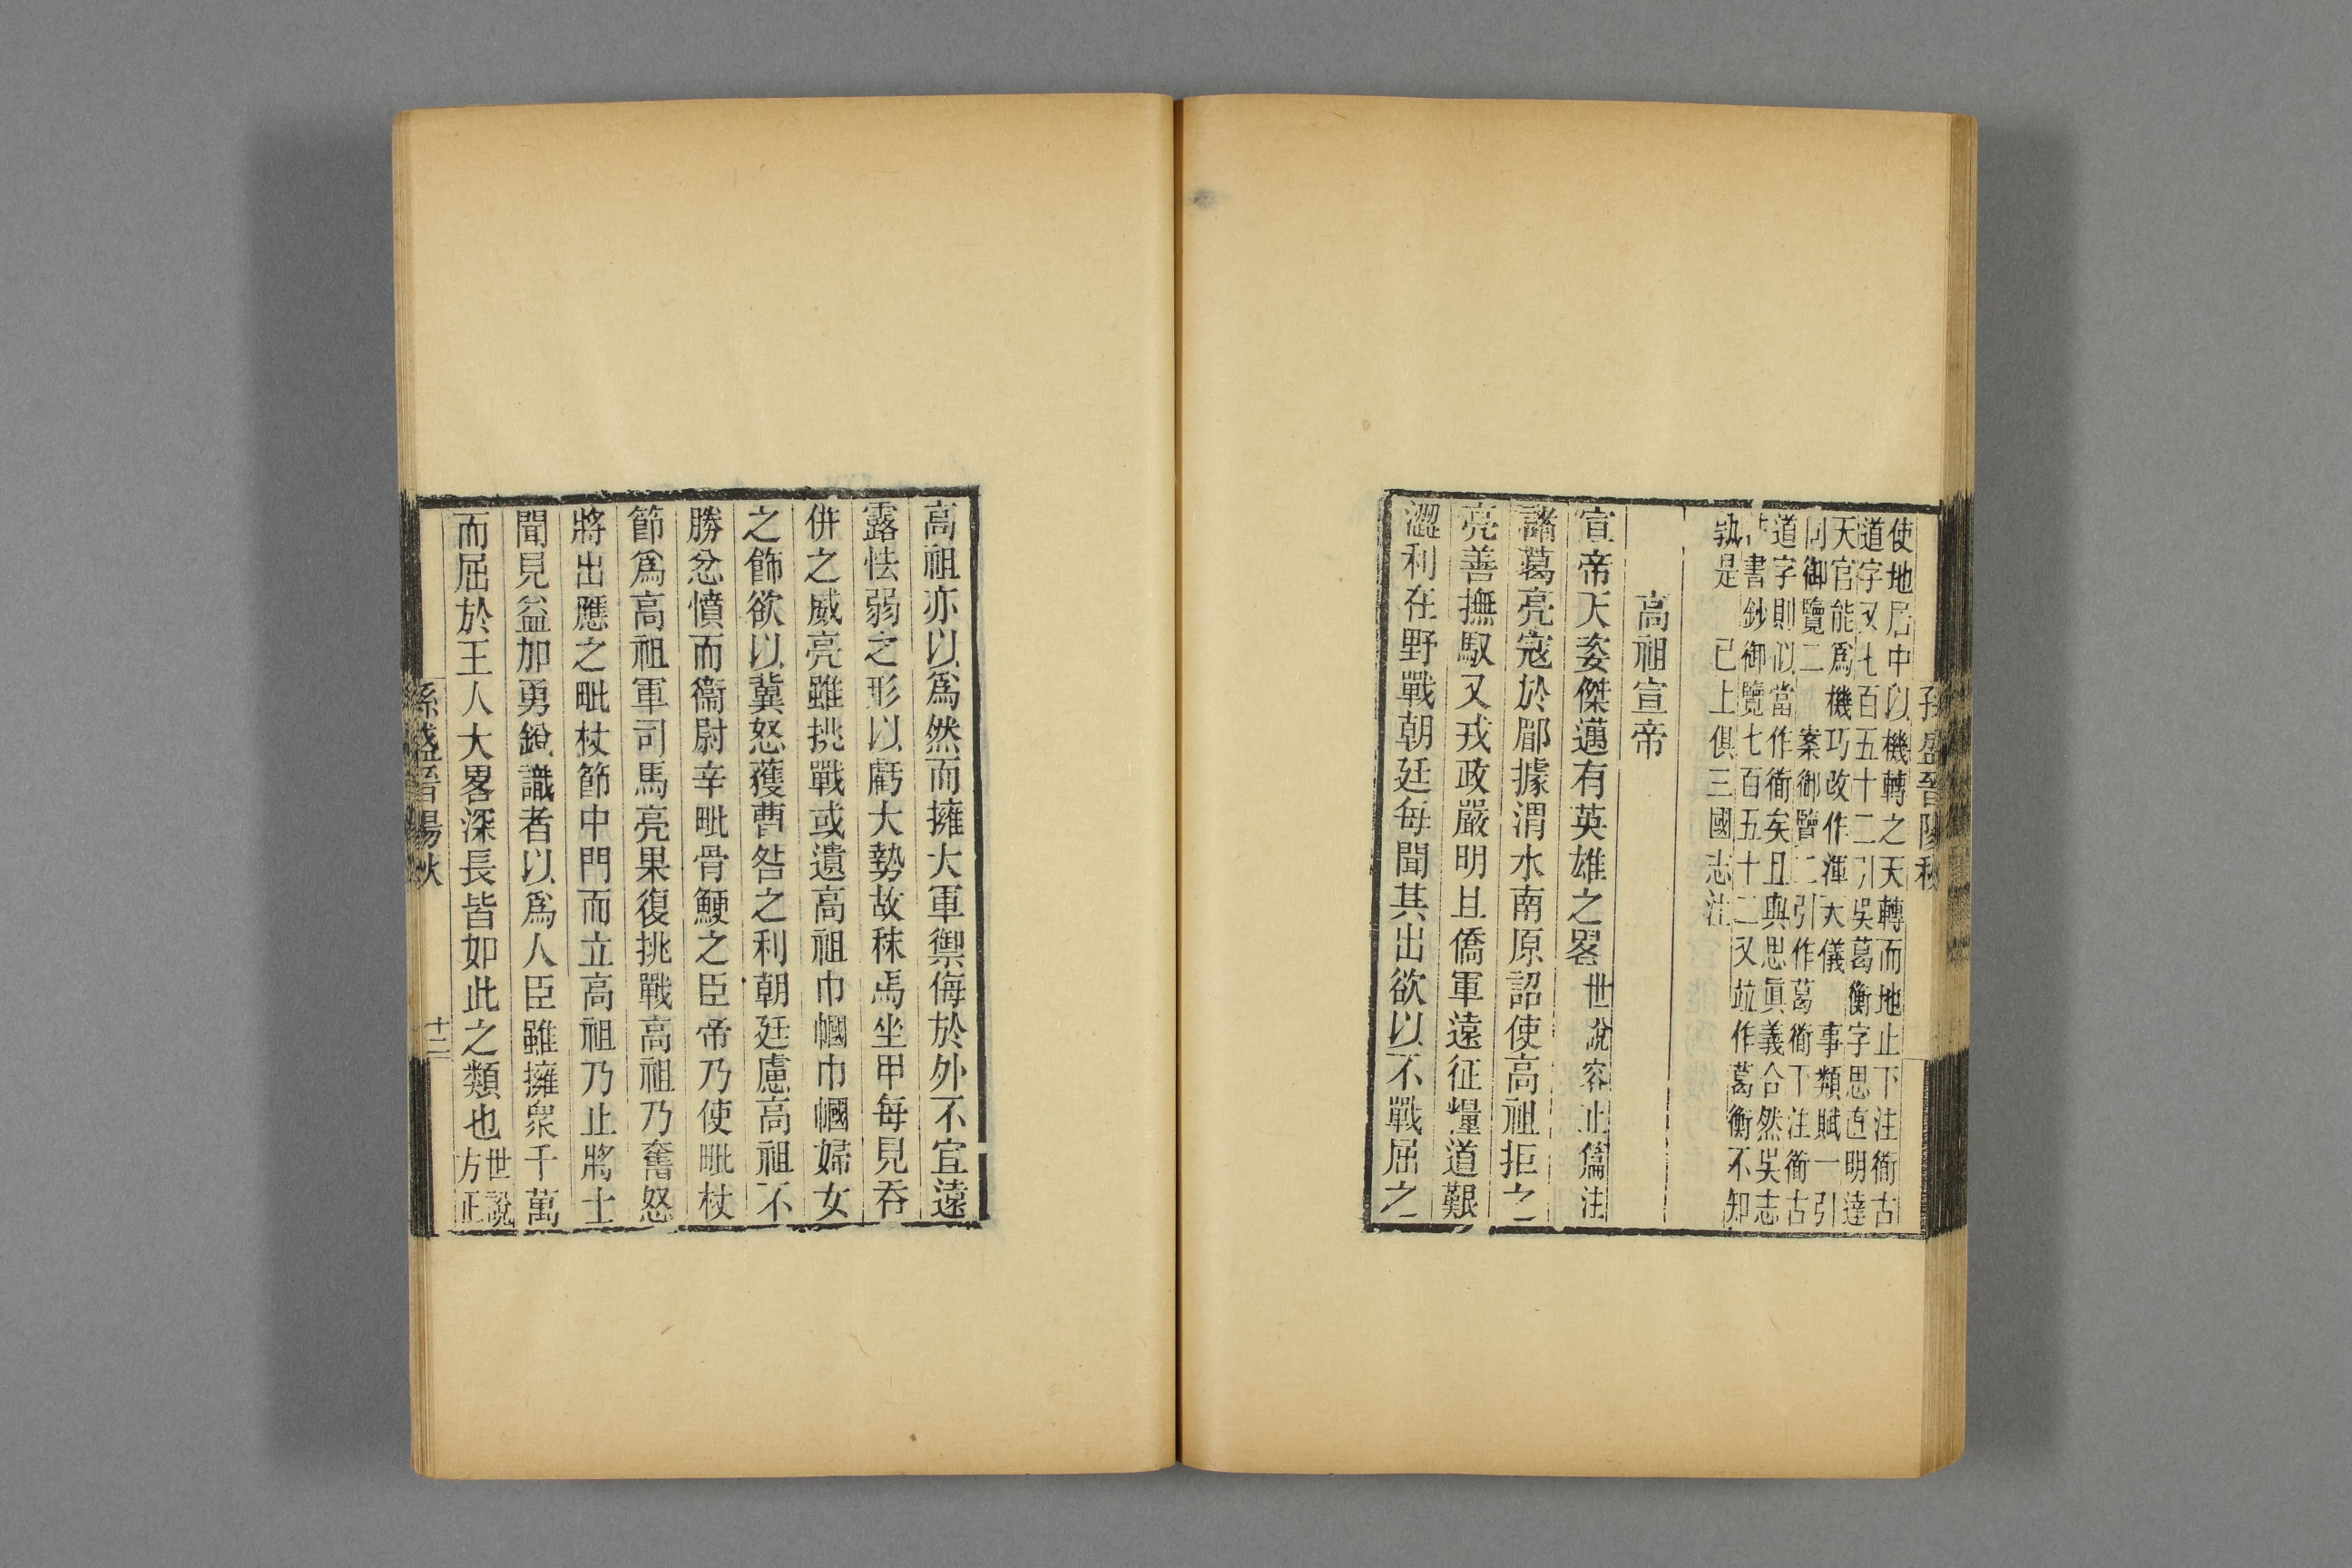 孫盛晉陽秋
使地居中以機轉之天轉而地止下注衡古
道字又七百五十二引吳葛衡字思眞明達
天官能爲機巧改作渾天儀 事類賦一引
同御覽二 案御覽二引作葛衡下注衡古
道字則似當作衜矣且與思眞義合然吳志
書鈔御覽七百五十二又竝作葛衡不知
孰是 已上俱三國志注
高祖宣帝
宣帝天姿傑邁有英雄之畧世說容止篇注
諸葛亮寇於郿據渭水南原詔使高祖拒之
亮善撫馭又戎政嚴明且僑軍遠征糧道艱
澀利在野戰朝廷每聞其出欲以不戰屈之
高祖亦以爲然而擁大軍禦侮於外不宜遠
露怯弱之形以虧大勢故秣馬坐甲每見吞
併之威亮雖挑戰或遺高祖巾幗巾幗婦女
之飾欲以冀怒獲曹咎之利朝廷慮高祖不
勝忿憤而衞尉辛毗骨鯁之臣帝乃使毗杖
節爲高祖軍司馬亮果復挑戰高祖乃奮怒
將出應之毗杖節中門而立高祖乃止將士
聞見益加勇銳識者以爲人臣雖擁衆千萬
而屈於王人大畧深長皆如此之類也世說
方正
孫盛晉陽秋 十二